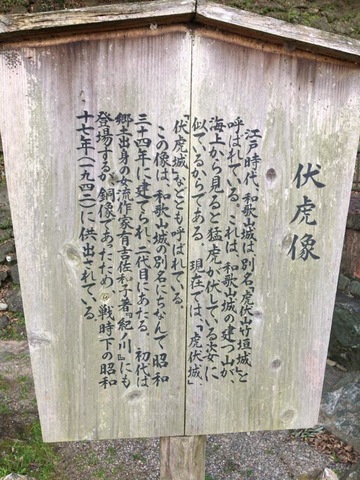 伏虎像
江戸時代、和歌山城は、別名「虎伏山竹垣城」と
呼ばれている。これは、和歌山城の建つ山が、
海上から見ると猛虎が伏している姿に
似ているからである。現在では、「虎伏城」
「伏虎城」などとも呼ばれている。
この像は、和歌山城の別名にちなんで、昭和
三十四年に建てられ、二代目にあたる。初代は
郷土出身の女流作家有吉佐和子著『紀ノ川』にも
登場するが、銅像であったため、戦時下の昭和
十七年(一九四二)に供出されている。